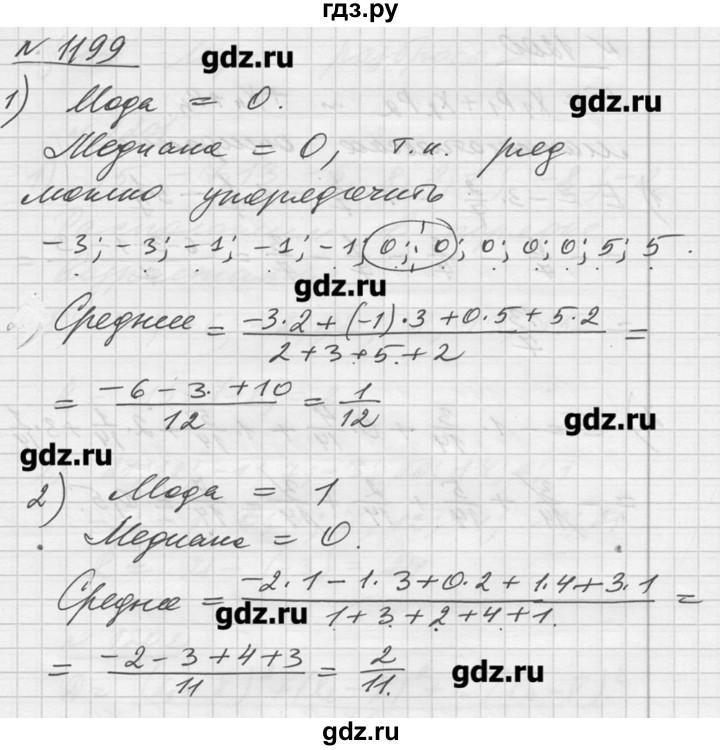 гдз.ру
№ 1199
gdz.ru
1) Мода = 0.
gdz.ru
Медиана = 0, т.к. ряд
можно упорядочить
-3; -3; -1; -1; -1; 0; 0; 0; 0; 0; 5; 5.
gdz.ru
Среднее = (-3·2 + (-1)·3 + 0·5 + 5·2)/(2 + 3 + 5 + 2) =
= (-6 - 3 + 10)/12 = 1/12
gdz.ru
gdz.ru
2) Мода = 1
Медиана = 0.
Среднее = (-2·1 - 1·3 + 0·2 + 1·4 + 3·1)/(1 + 3 + 2 + 4 + 1) =
gdz.ru
= (-2 - 3 + 4 + 3)/11 = 2/11.
gdz.ru
gdz.ru